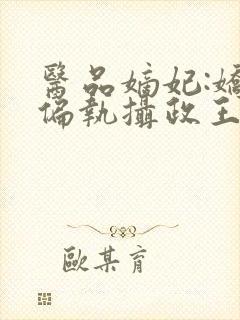 醫品嫡妃:嬌
偏執攝政王
歐某育